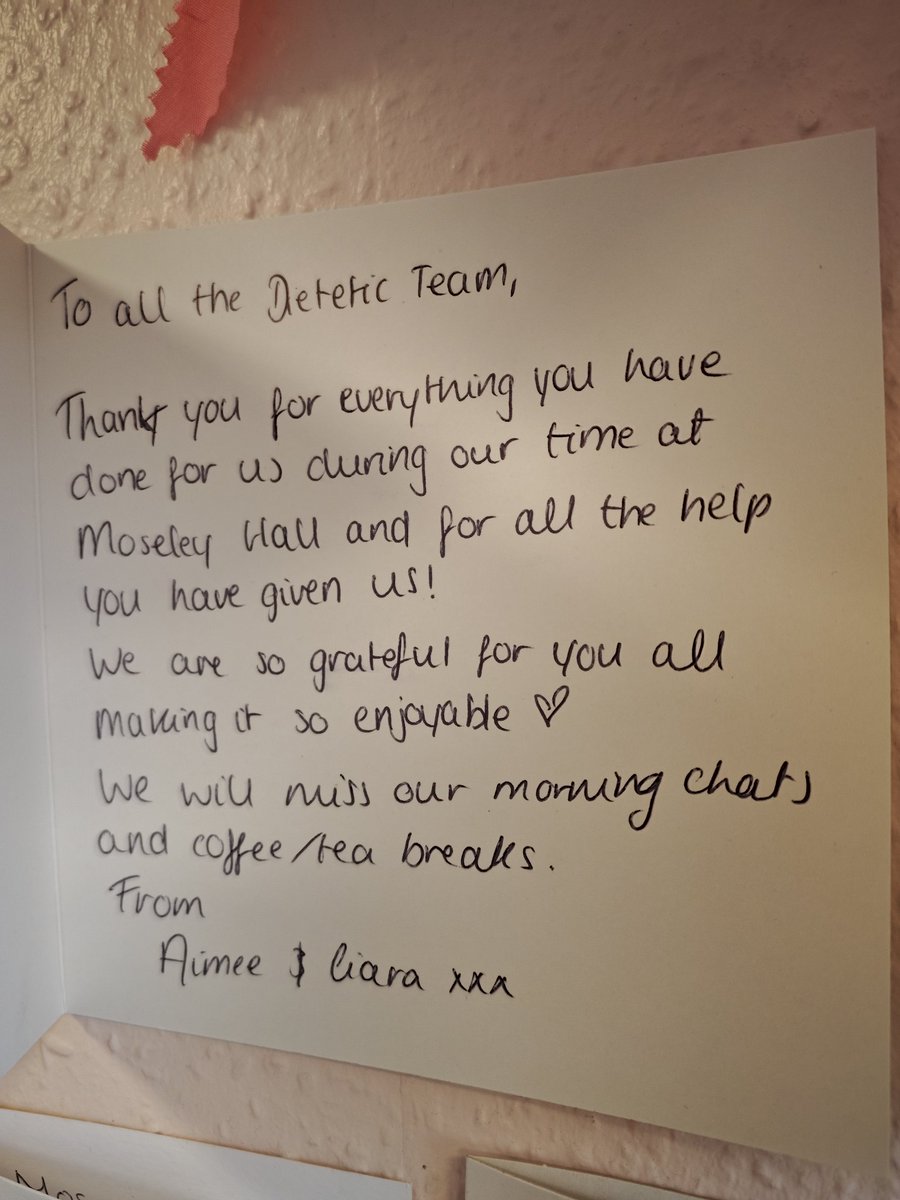 To all the Dietetic Team,
Thank you for everything you have
done for us during our time at
Moseley Hall and for all the help
you have given us!
We are so grateful for you all
making it so enjoyable ♡
We will miss our morning chats
and coffee/tea breaks.
From
Aimee & Ciara xxx